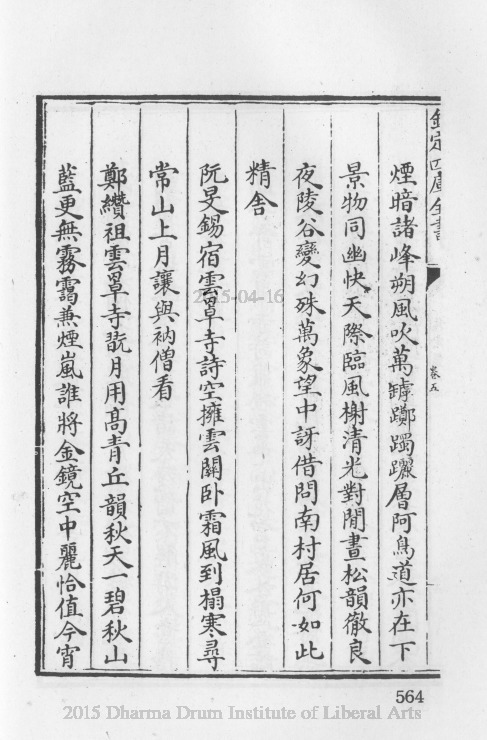 欽定四庫全書
卷五
煙暗諸峰朔風吹萬罅躑躅躧層阿鳥道亦在下
景物同幽快天際臨風榭清光對閒晝松韻徹良
夜陵谷變幻殊萬象望中訝借問南村居何如此
精舍
阮旻錫宿雲罩寺詩空擁雲關卧霜風到榻寒尋
常山上月讓與衲僧看
鄭纘祖雲罩寺翫月用高青丘韻秋天一碧秋山
藍更無霧靄兼煙嵐誰將金鏡空中麗恰值今宵
2015-04-16
564
2015 Dharma Drum Institute of Liberal Arts